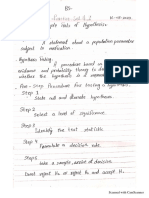 BS-
Practice Set 6.2
Simple tests of Hypothesis
A statement about a population parameter
subject to verification.
Hypothesis Testing
A procedure based on
evidence and probability theory to
whether the hypothesis is a
Five - Step Procedure for testing a hypothesis.
Step 1
State null and alternate hypothesis.
Step 2
Select a level of significance.
Step 3
Identify the test statistic
Step 4
Formulate a decision rule.
Step 5
Take a sample, arrive at decision.
Do not reject H₀ or reject H₀ and accept H₁.
Scanned with CamScanner